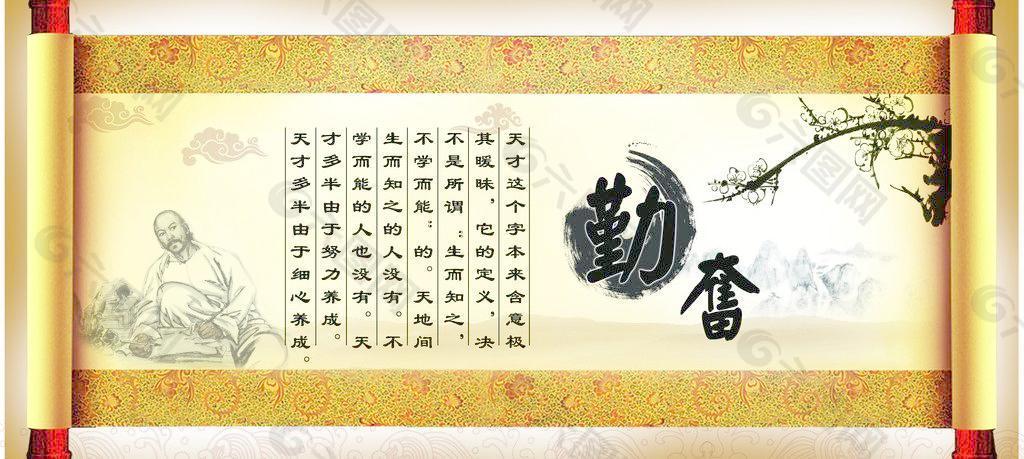 勤
奋
天才这个字本来含意极
其暖昧，它的定义，决
不是所谓“生而知之，
不学而能”的。天地间
生而知之的人没有。不
学而能的人也没有。天
才多半由于努力养成。
天才多半由于细心养成。